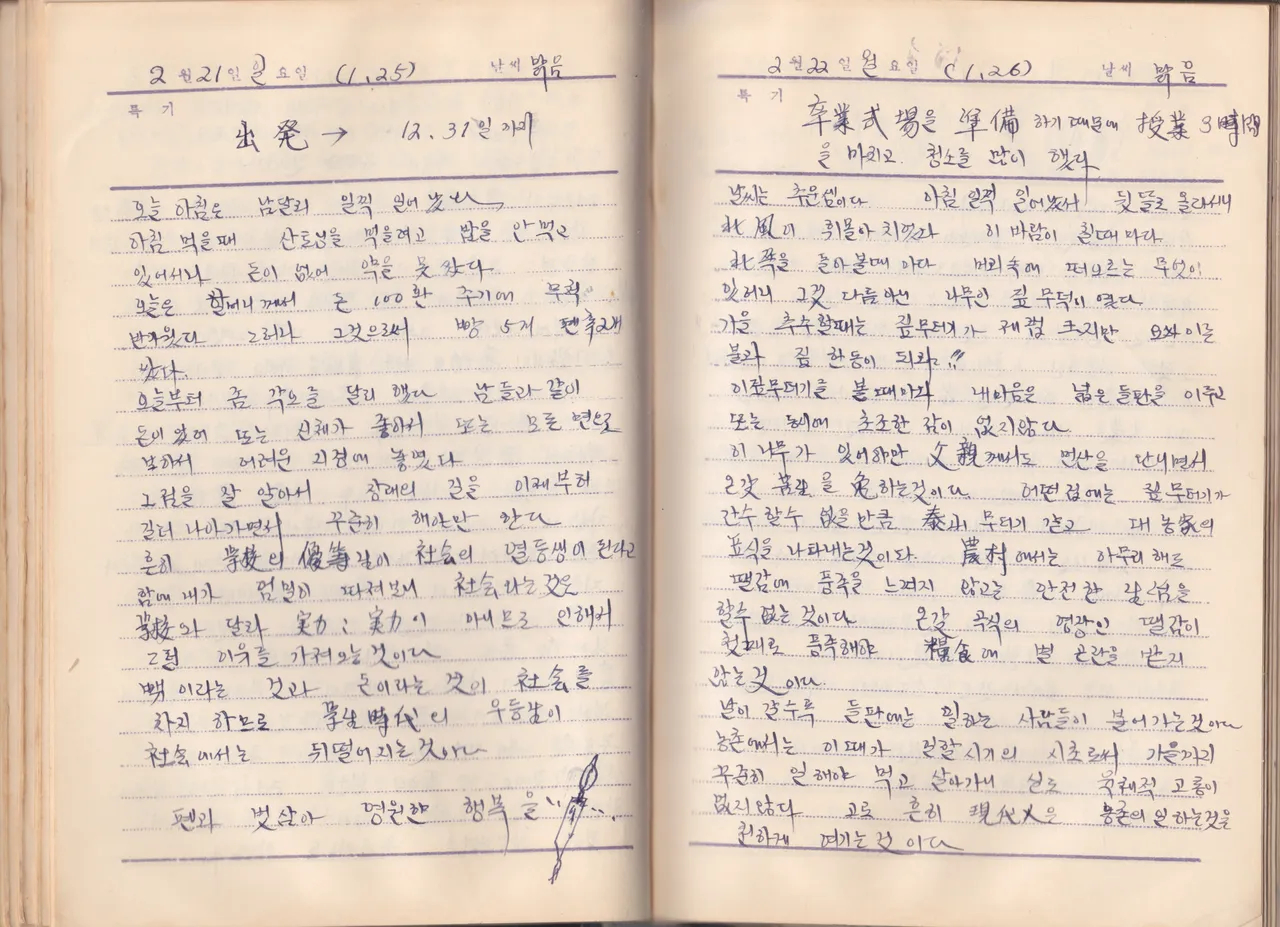 2월 21일 일요일 (1, 25) 날씨 맑음
특기
出発 → 12. 31일 까지
오늘 아침은 남달리 일찍 일어 났다
아침 먹을때 산토닝을 먹을려고 밥을 안먹고
있어서나 돈이 없어 약을 못 샀다
오늘은 할머니께서 돈 100환 주기에 무척
반가웠다 그러나 그것으로써 빵 5개 펜촉2개
샀다.
오늘부터 좀 각오를 달리 했다 남들과 같이
돈이 있어 또는 신체가 좋아서 또는 모든 면으로
보아서 어려운 지경에 놓였다
그점을 잘 알아서 장래의 길을 이제부터
길러 나아가면서 꾸준히 해야만 한다
흔히 学校의 優等생이 社会의 열등생이 된다고
함에 내가 엄밀히 따져보니 社会라는 것은
学校와 달라 実力; 実力이 아니므로 인해서
그럼 이유를 가져오는 것이다
빽 이라는 것과 돈이라는 것이 社会를
차지 하므로 学生時代의 우등生이
社会에서는 뒤떨어지는것이다
펜과 벗삼아 영원한 행복을 ''...
2월 22일 월요일 (1, 26) 날씨 맑음
특기
卒業式場을 準備 하기 때문에 授業 3時間
을 마치고. 청소를 많이 했다
날씨는 추운셈이다 아침 일찍 일어나서 뒷뜰로 올라서니
北風이 휘몰아 치었다 이 바람이 칠때마다
北쪽을 돌아볼때 마다 머리속에 떠오르는 무엇이
있어니 그것 다름아닌 나무인 짚 무덕이 였다
가을 추수할때는 짚무더기가 제법 크지만 요와 이는
불과 짚 한동이 되와..!?
이짚무더기를 볼때마다 내마음은 넓은 들판을 이루고
또는 동시에 초조한 감이 없지않다
이 나무가 있어야만 父親께서도 먼산을 단니면서
온갖 苦生을 免하는것이다. 어떤집에는 짚무더기가
간수 할수 없을만큼 泰산 무더기 같고 대 농家의
표식을 나타내는것이다. 農村에서는 아무리 해도
땔감에 풍족을 느껴지 않고는 안전한 살님을
할수 없는 것이다 온갖 곡식의 영광인 땔감이
첫째로 풍족해야 糧食에 별 곤란을 받지
않는것 이다
날이 갈수록 들판에는 일하는 사람들이 불어가는것이다
농촌에서는 이때가 일할시기의 시초로써 가을까지
꾸준히 일해야 먹고 살아가니 실로 육체적 고통이
없지않다 고로 흔히 現代人은 농촌의 일하는것을
천하게 여기는것 이다